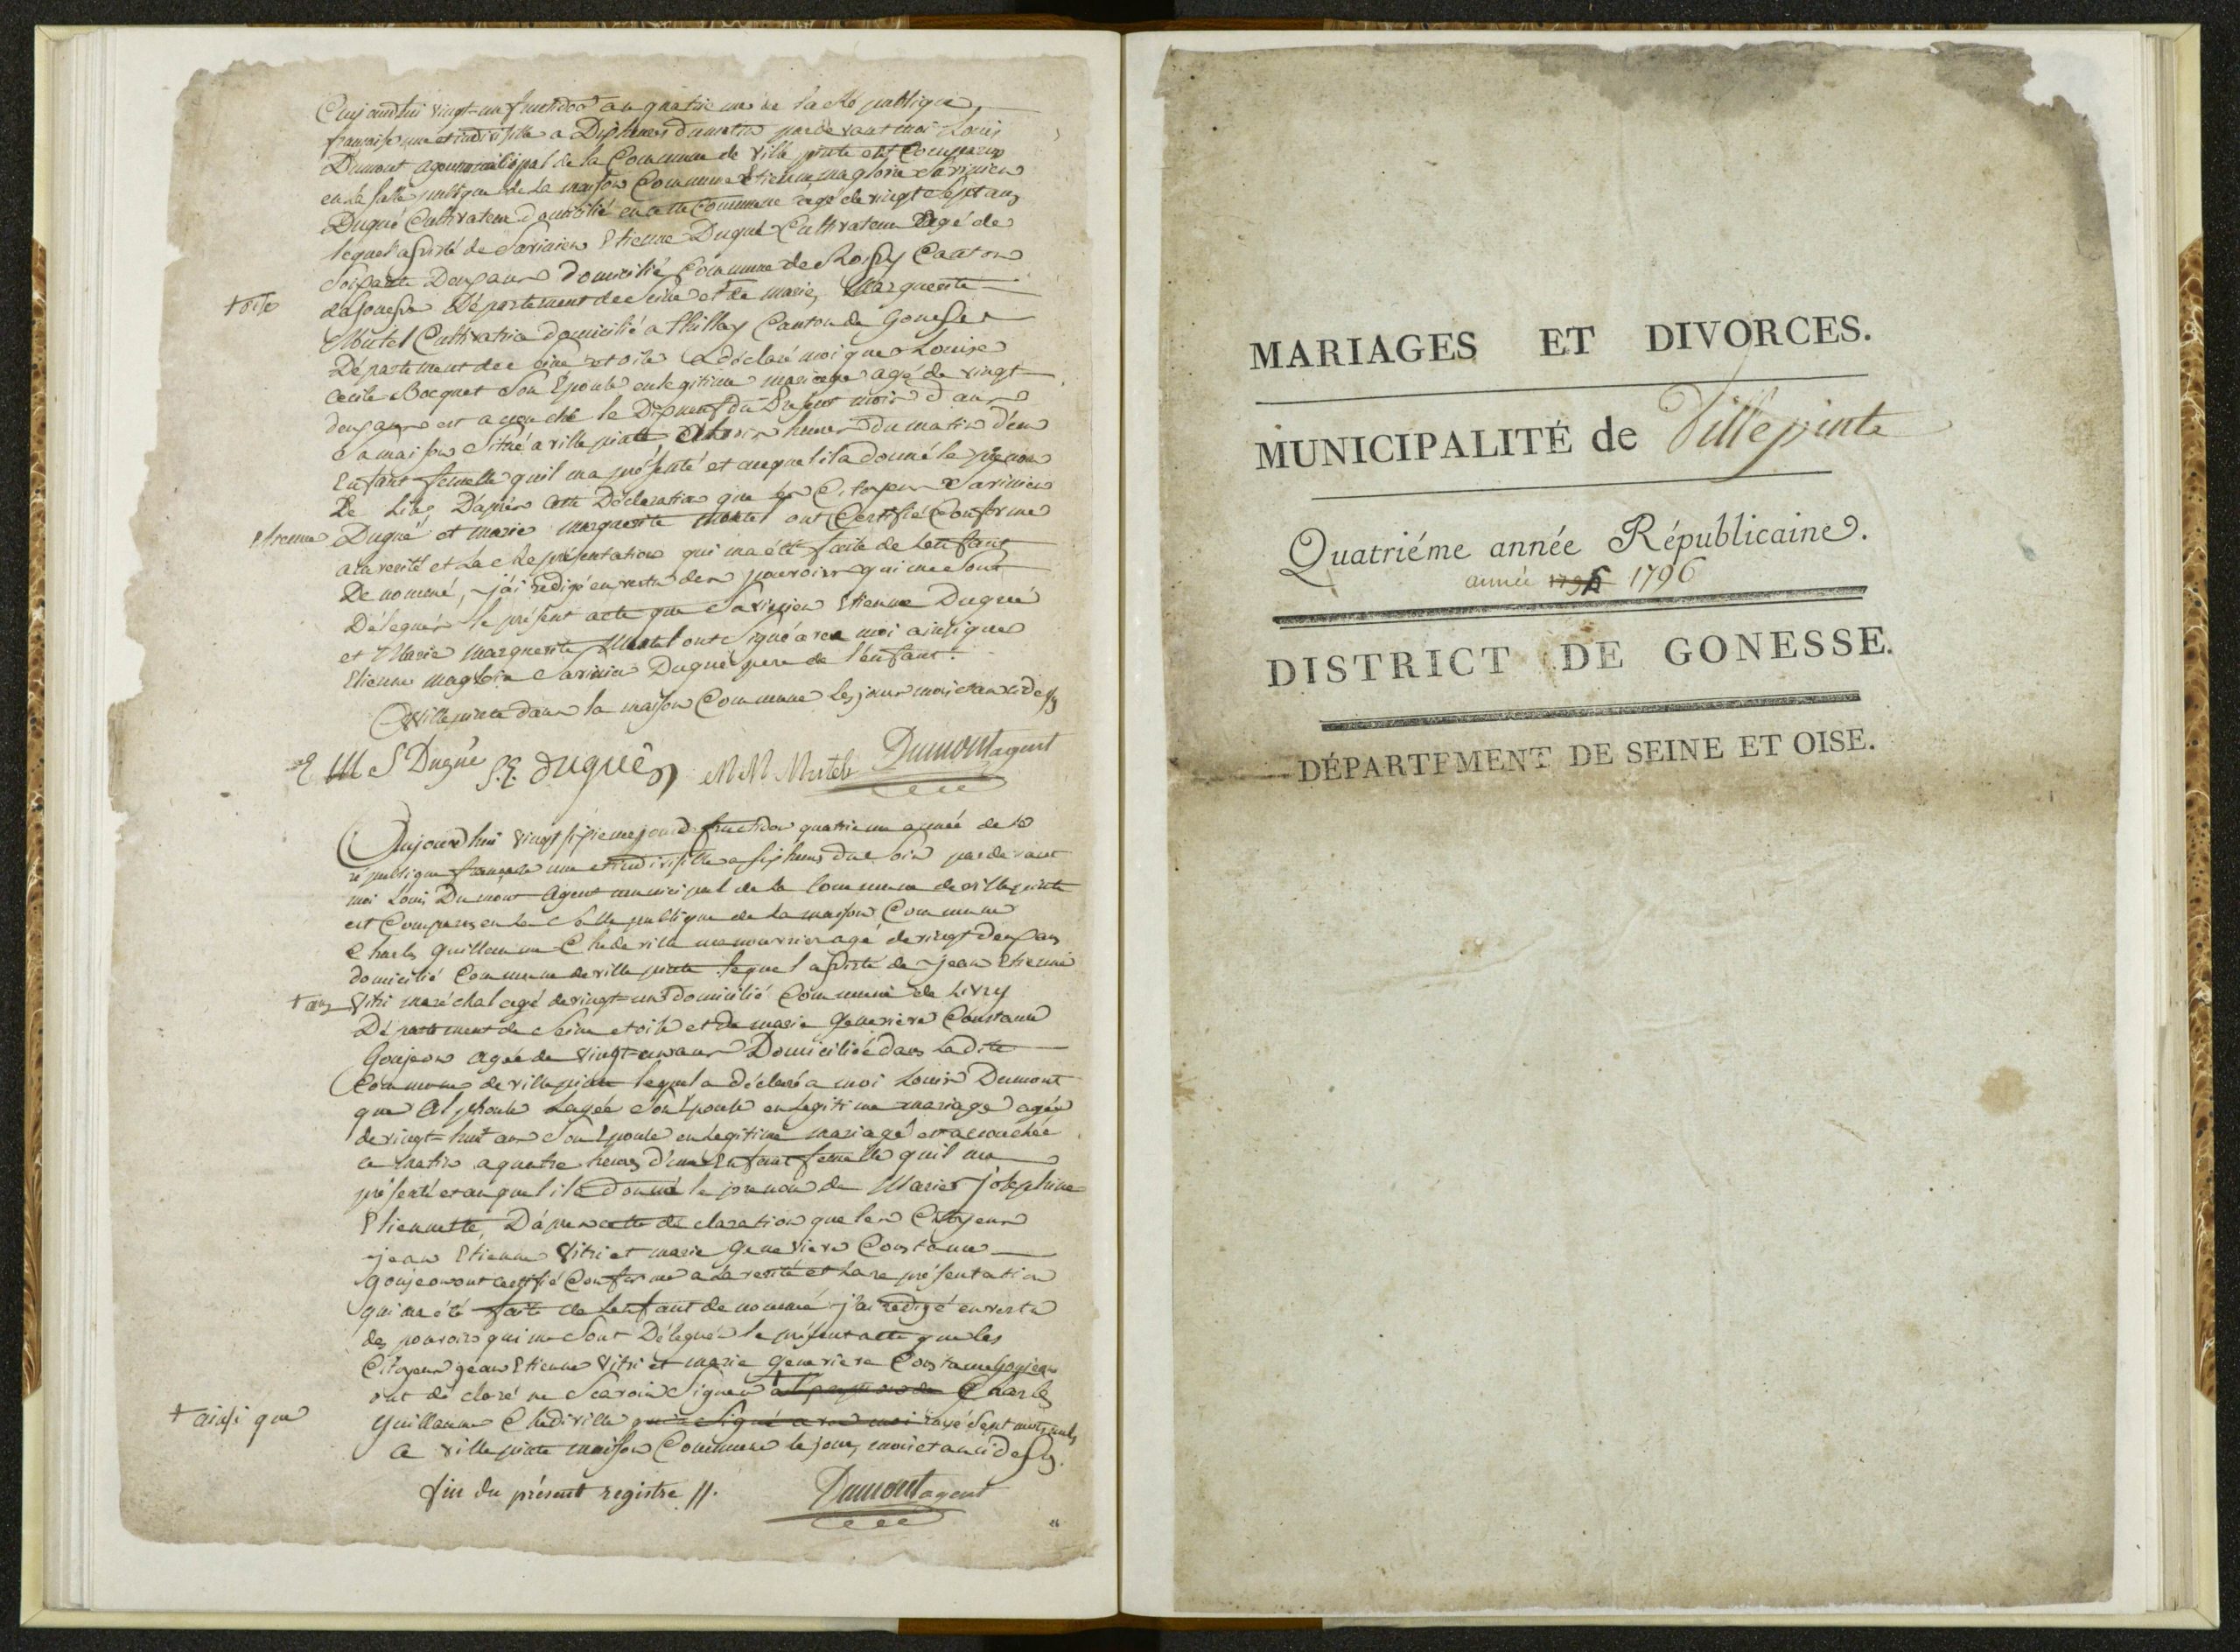 Aujourdhui vingt=un fructidor an quatrieme de la Republique
françoise une et indivisible a Dix heures du matin pardevant moi Louis
Dumont agent municipal de la Commune de Ville pinte est Comparu
en la salle publique de la maison Commune Etienne magloire Savinien
Dugué Cultivateur domicilié en cette Commune agé de vingt sept ans
lequel assisté de Savinien Etienne Dugué Cultivateur agé de
Soixante Deux ans domicilié Commune de Roissy Canton
de Gonesse Département de Seine et de marie Marguerite
+ oise
Martel Cultivatrice domicilié a thillay Canton de Gonesse
Département de Seine et oise a déclaré moi que Louise
Cecile Bocquet Son Epouse en legitime mariage agé de vingt
deux ans est accouché le Dixneuf du Présent mois dans
Sa maison Située a ville pinte heures du matin d'un
Enfant femelle quil ma présenté et auquel il a donné le prenom
De D'après cette Déclaration que les Citoyens Savinien
etienne Dugué et marie marguerite Martel ont Certifié Conforme
a la verité et La Représentation qui ma été faite de Lenfant
De nommé, j'ai redigé en vertu des pouvoirs qui me Sont
Délegués le présent acte que Savinien Etienne Dugué
et Marie Marguerite Martel ont Signé avec moi ainsi que
Etienne magloire Savinien Dugué pere de l'enfant.
a Villepinte dans la maison Commune les jour mois et an ci dessus
E M S Dugué S.E. dugués M M Martel Dumont agent
Aujourdhui vingt sixieme jour de fructidor quatrieme année de la
république françoise une et indivisible a six heures du Soir pardevant
moi Louis Dumont Agent municipal de la Commune de villepinte
est Comparu en la Salle publique de la maison Commune
Charles Guillaume Chedeville manouvrier agé de vingt deux ans
domicilié Commune de ville pinte lequel assisté de Jean Etienne
+ ans
Vitri maréchal agé de vingt=un domicilié Commune de Livry
Département de Seine et oise et de marie Genevieve Constance
Goujeon agée de vingt=un ans Domiciliée dans Ladite
Commune de villepinte lequel a déclaré a moi Louis Dumont
que Alphonse Lagée Son Epouse en legitime mariage agée
de vingt=huit ans Son Epouse en legitime mariage est accouchée
ce matin a quatre heures d'un Enfant femelle quil ma
présenté et auquel il a Donné le prenom de Marie Josephine
Etiennette, D'après cette declaration que les Citoyens
jean Etienne Vitri et marie Genevieve Constance
Goujeon ont certifié Conforme a la verité et La représentation
qui ma été faite de Lenfant denommé j'ai redigé en vertu
des pouvoirs qui me Sont Délegués le présent acte que les
Citoyens jean Etienne Vitri et marie Genevieve Constance Goujeon
ont déclaré ne Scavoir Signer Charles
+ ainsi que
Guillaume Chediville qui a Signé avec moi rayé Sept mots nuls
a ville pinte maison Commune le jour, mois et an ci dessus.
fin du présent registre //. Dumont agent
MARIAGES ET DIVORCES.
MUNICIPALITÉ de Villepinte
Quatriéme année Républicaine.
année 1795 1796
DISTRICT DE GONESSE.
DÉPARTEMENT DE SEINE ET OISE.